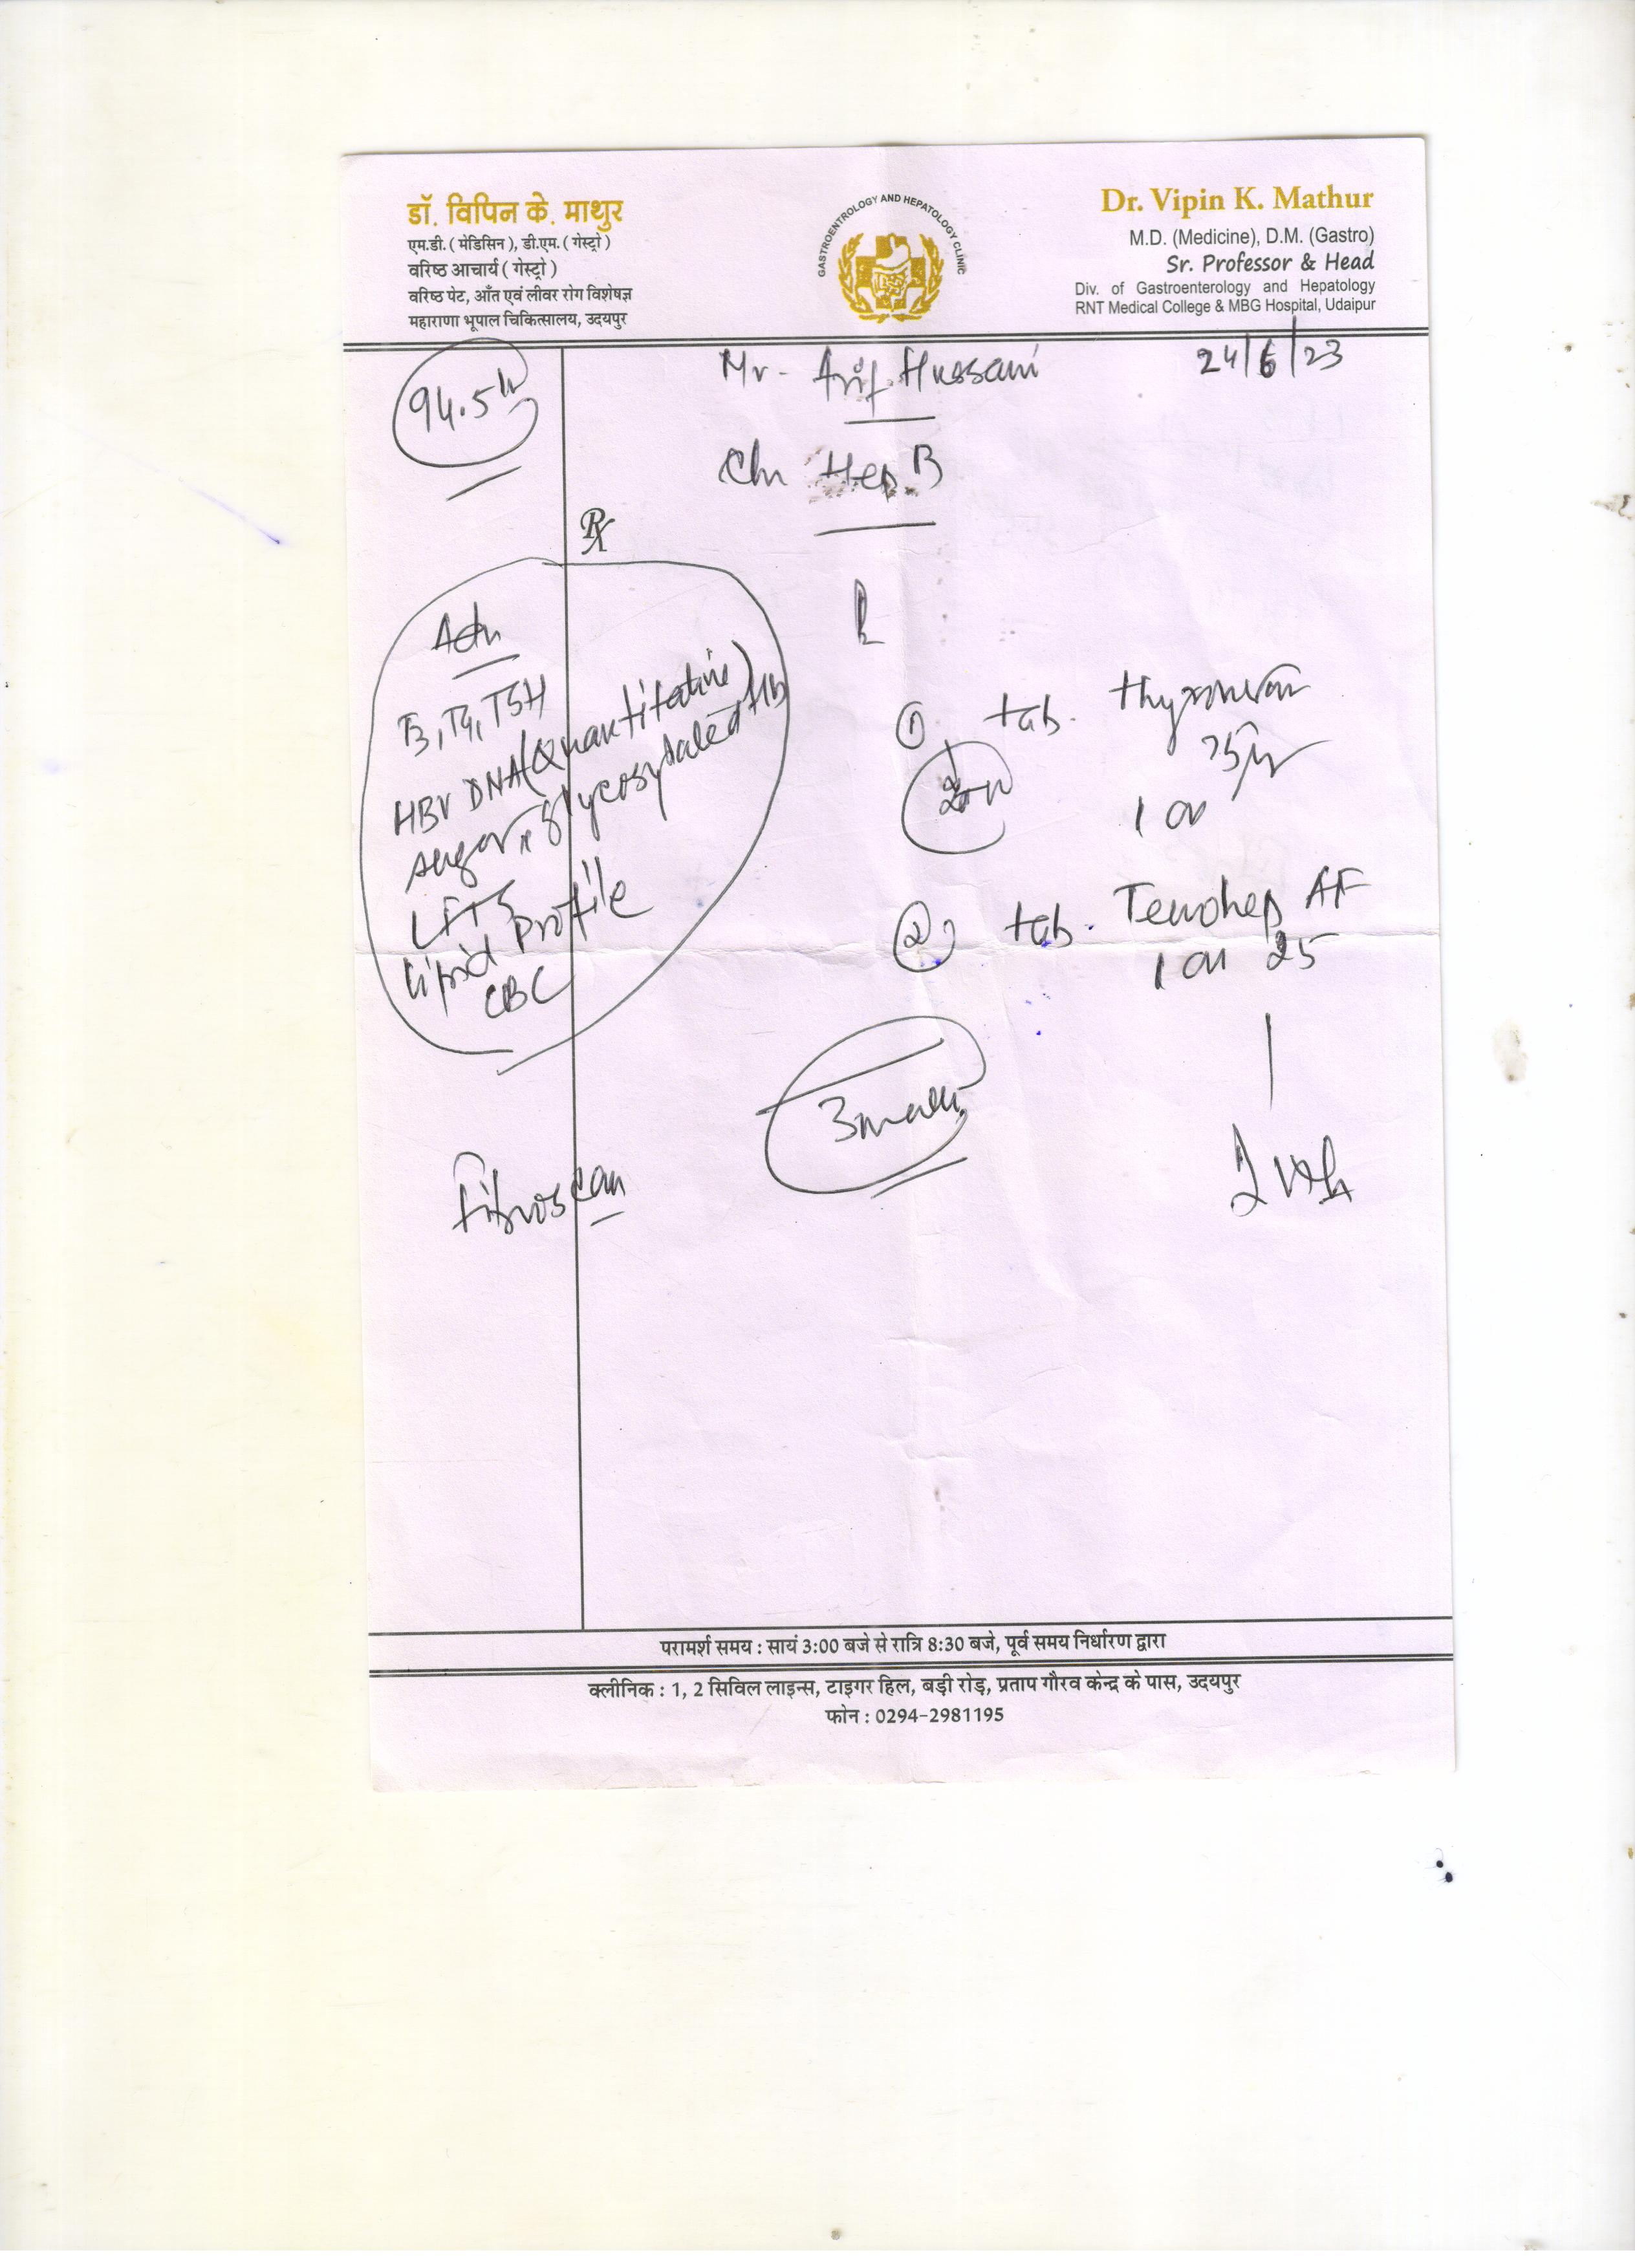 डॉ. विपिन के. माथुर
एम.डी. ( मेडिसिन ), डी.एम. ( गेस्ट्रो )
वरिष्ठ आचार्य ( गेस्ट्रो )
वरिष्ठ पेट, आँत एवं लीवर रोग विशेषज्ञ
महाराणा भूपाल चिकित्सालय, उदयपुर
GASTROENTROLOGY AND HEPATOLOGY CLINIC
Dr. Vipin K. Mathur
M.D. (Medicine), D.M. (Gastro)
Sr. Professor & Head
Div. of Gastroenterology and Hepatology
RNT Medical College & MBG Hospital, Udaipur
94.5
Mr - Arif Hussain
24/6/23
Hep B
Rx
Adv
T3, T4, TSH
HBV DNA (Quantitative)
sugar, glycosylated Hb
LFTS
lipid Profile
CBC
Fibroscan
① tab.
1
② tab. Tenohep AF
1 25
परामर्श समय : सायं 3:00 बजे से रात्रि 8:30 बजे, पूर्व समय निर्धारण द्वारा
क्लीनिक : 1, 2 सिविल लाइन्स, टाइगर हिल, बड़ी रोड़, प्रताप गौरव केन्द्र के पास, उदयपुर
फोन : 0294-2981195